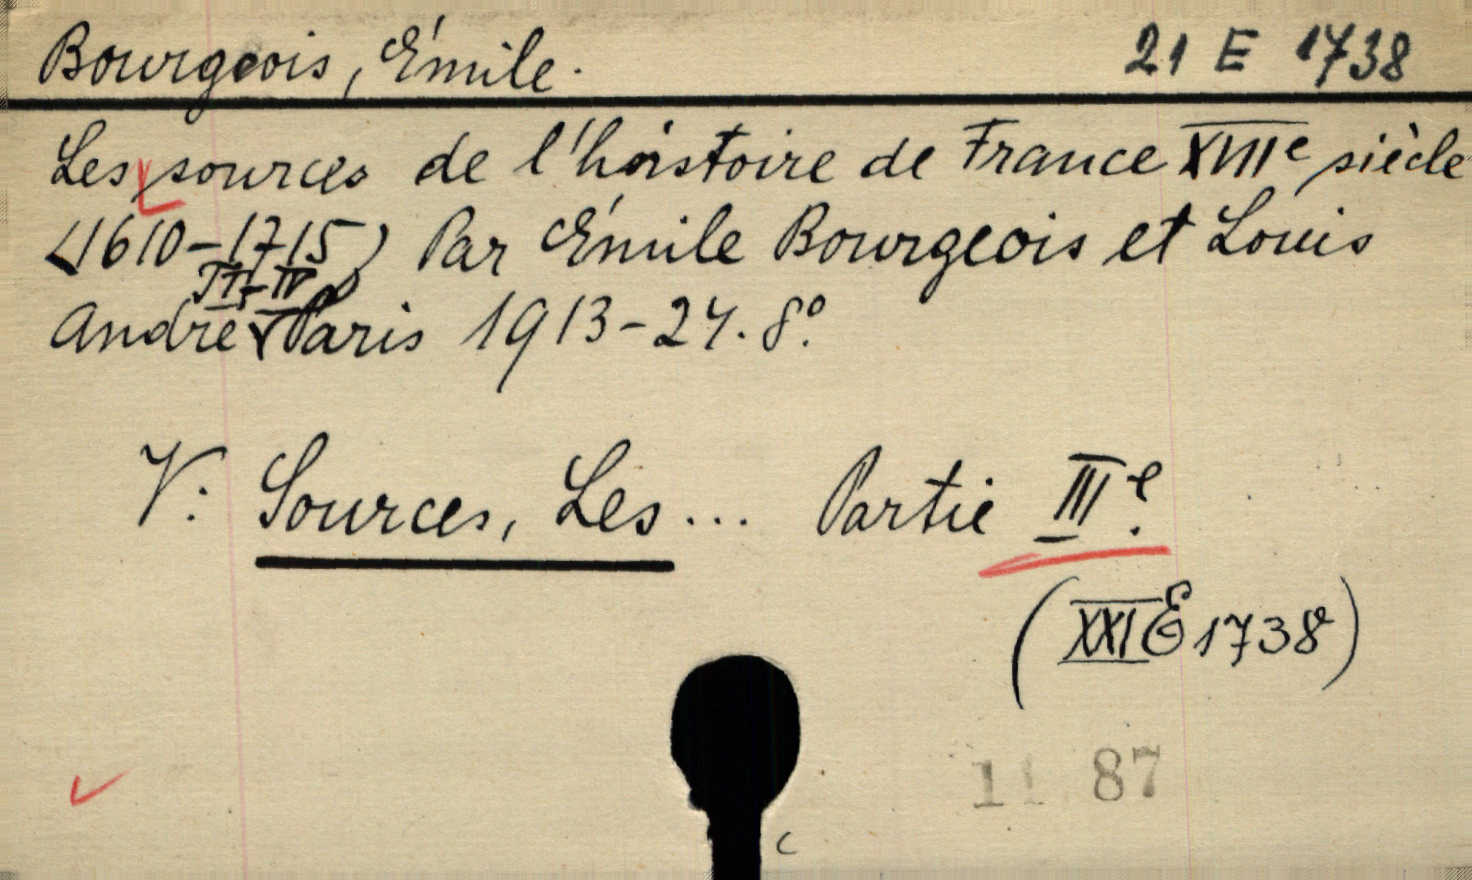 Bourgeois, Émile.
21 E 1738
Les sources de l'histoire de France XVIIe siècle
(1610-1715) Par Émile Bourgeois et Louis
André Paris 1913-24. 8°.
V: Sources, Les... Partie IIIe.
(XXI E 1738)
87